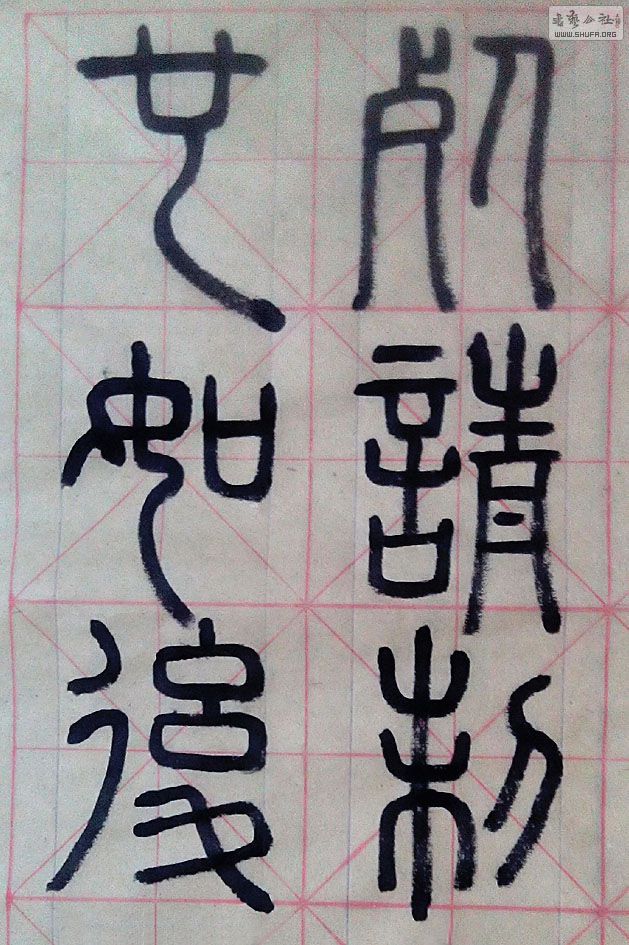 死請制
也如後
書藝公社
WWW.SHUFA.ORG